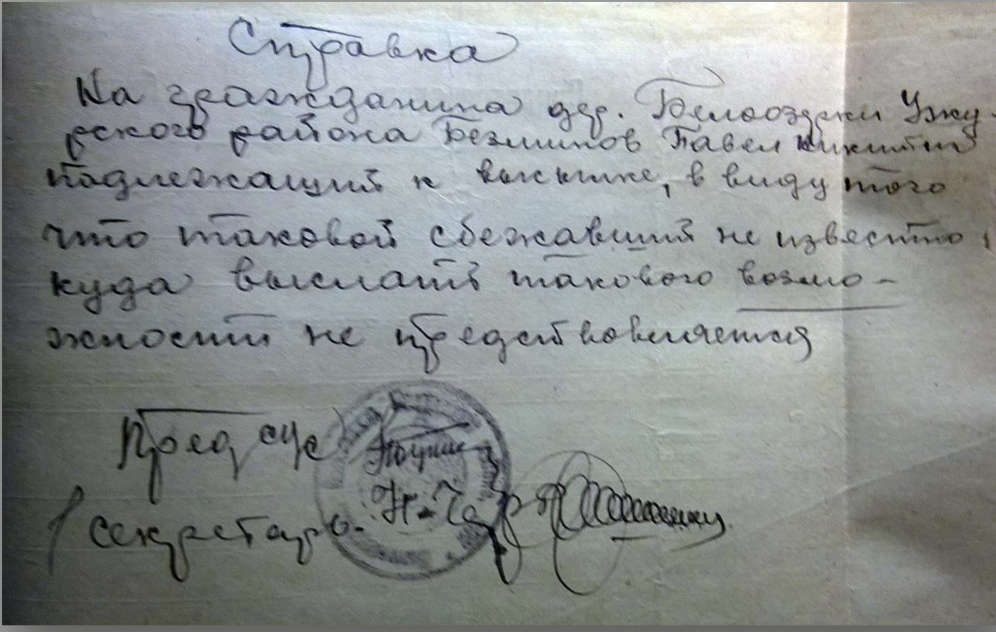 Справка
На гражданина дер. Белоозерки Ужу-
рского района Безлипов Павел Никитин
подлежащий к высылке, в виду того
что таковой сбежавший не известно
куда выслать такового возмо-
жности не предствовляется
Пред с/с
Секретарь